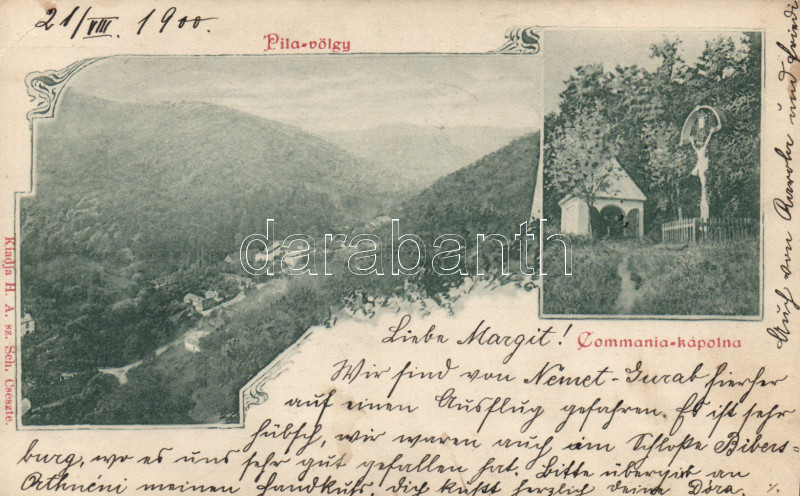 21/VIII. 1900.
Pila-völgy
Kiadja H. A. sz. Sch. Cseszte.
darabanth.com
Commania-kápolna
Liebe Margit!
Wir sind von Nemet-Gurab hierher
auf einen Ausflug gefahren. Es ist sehr
hübsch, wir waren auch im Schloße Bibers-
burg, wo es uns sehr gut gefallen hat. Bitte übergib an
meinen Handkuß. Dich küßt herzlich deine Dóra.
Auch von Karola und Friedi